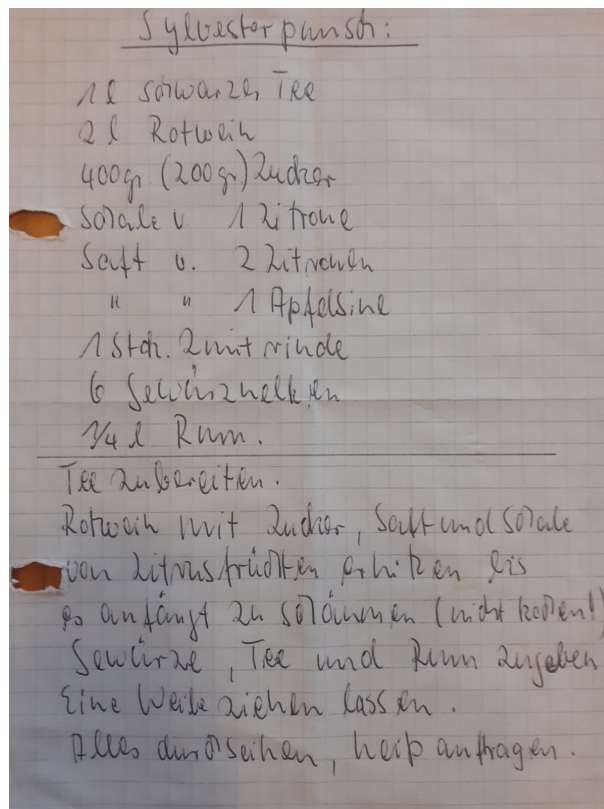 Sylvesterpunsch:
1 l schwarzer Tee
2 l Rotwein
400gr. (200gr) Zucker
Schale v. 1 Zitrone
Saft v. 2 Zitronen
" " 1 Apfelsine
1 Stck. Zimtrinde
6 Gewürznelken
1/4 l Rum.
Tee zubereiten.
Rotwein mit Zucker, Saft und Schale
von Zitrusfrüchten erhitzen bis
es anfängt zu schäumen (nicht kochen!)
Gewürze, Tee und Rum zugeben
Eine Weile ziehen lassen.
Alles durchseihen, heiß auftragen.